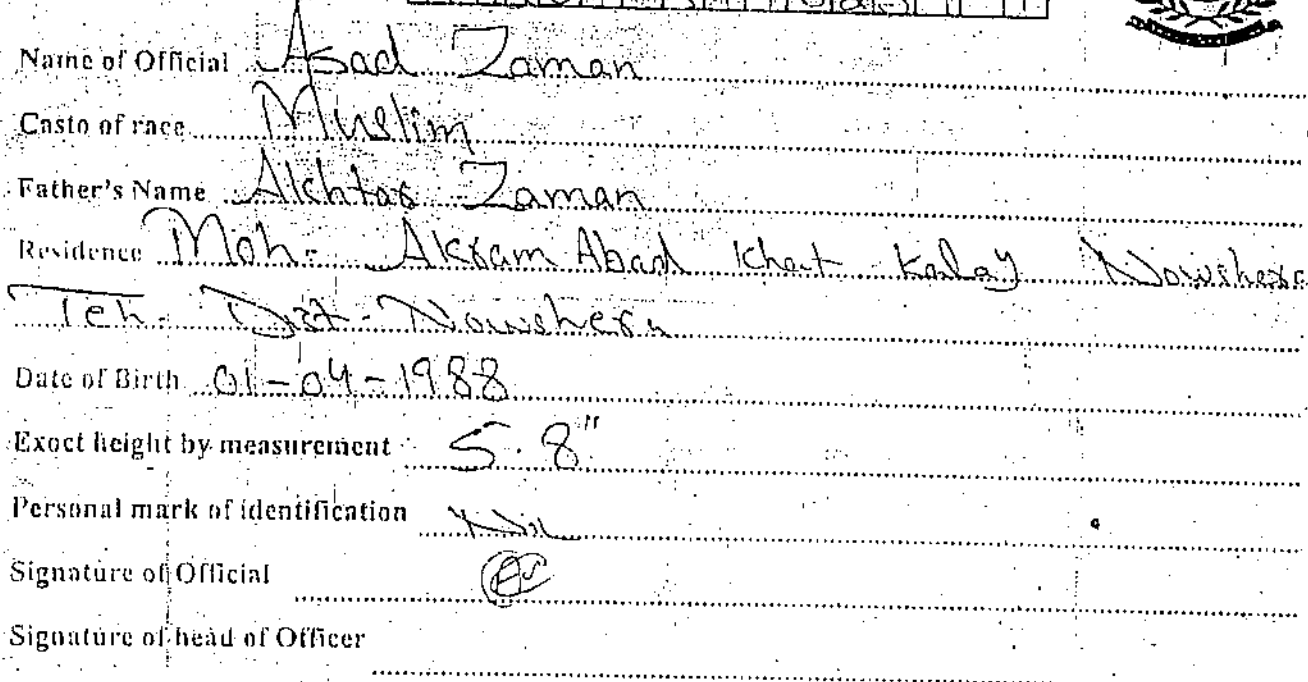 Name of Official Asad Zaman
Casto of race Muslim
Father's Name Akhtar Zaman
Residence Moh- Akram Abad Khat Kalay Nowshera
Teh- Dist- Nowshera
Date of Birth 01-04-1988
Exoct height by measurement 5.8"
Personal mark of identification Nil
Signature of Official
Signature of head of Officer